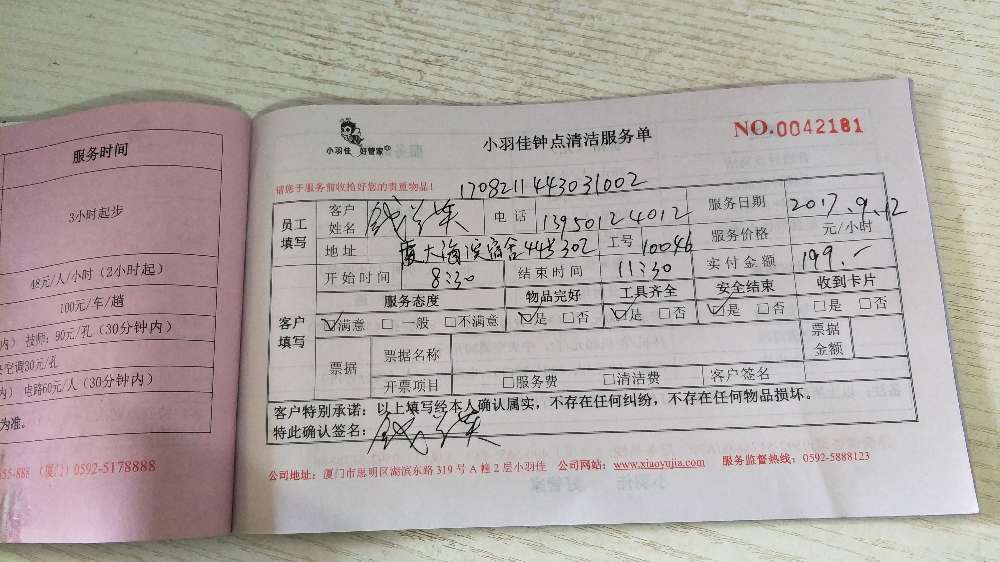 服务时间
3小时起步
48元/人/小时（2小时起）
100元/车/趟
内） 技师：90元/孔（30分钟内）
空调30元/孔
内） 电路60元/人（30分钟内）
为准。
55-888 （厦门）0592-5178888
小羽佳 好管家
小羽佳钟点清洁服务单
NO.0042181
请您于服务前收拾好您的贵重物品！
1708211443031002
员工填写
客户姓名
电 话 13950124012
服务日期 2017.9.12
地 址 厦大海滨宿舍
工号 10046
服务价格 元/小时
开始时间 8:30
结束时间 11:30
实付金额 199.-
客户填写
服务态度 物品完好 工具齐全 安全结束 收到卡片
☑满意 □一般 □不满意 ☑是 □否 ☑是 □否 ☑是 □否 □是 □否
票据
票据名称
票据金额
开票项目 □服务费 □清洁费 客户签名
客户特别承诺：以上填写经本人确认属实，不存在任何纠纷，不存在任何物品损坏。
特此确认签名：
公司地址：厦门市思明区湖滨东路319号A幢2层小羽佳 公司网站：www.xiaoyujia.com 服务监督热线：0592-5888123